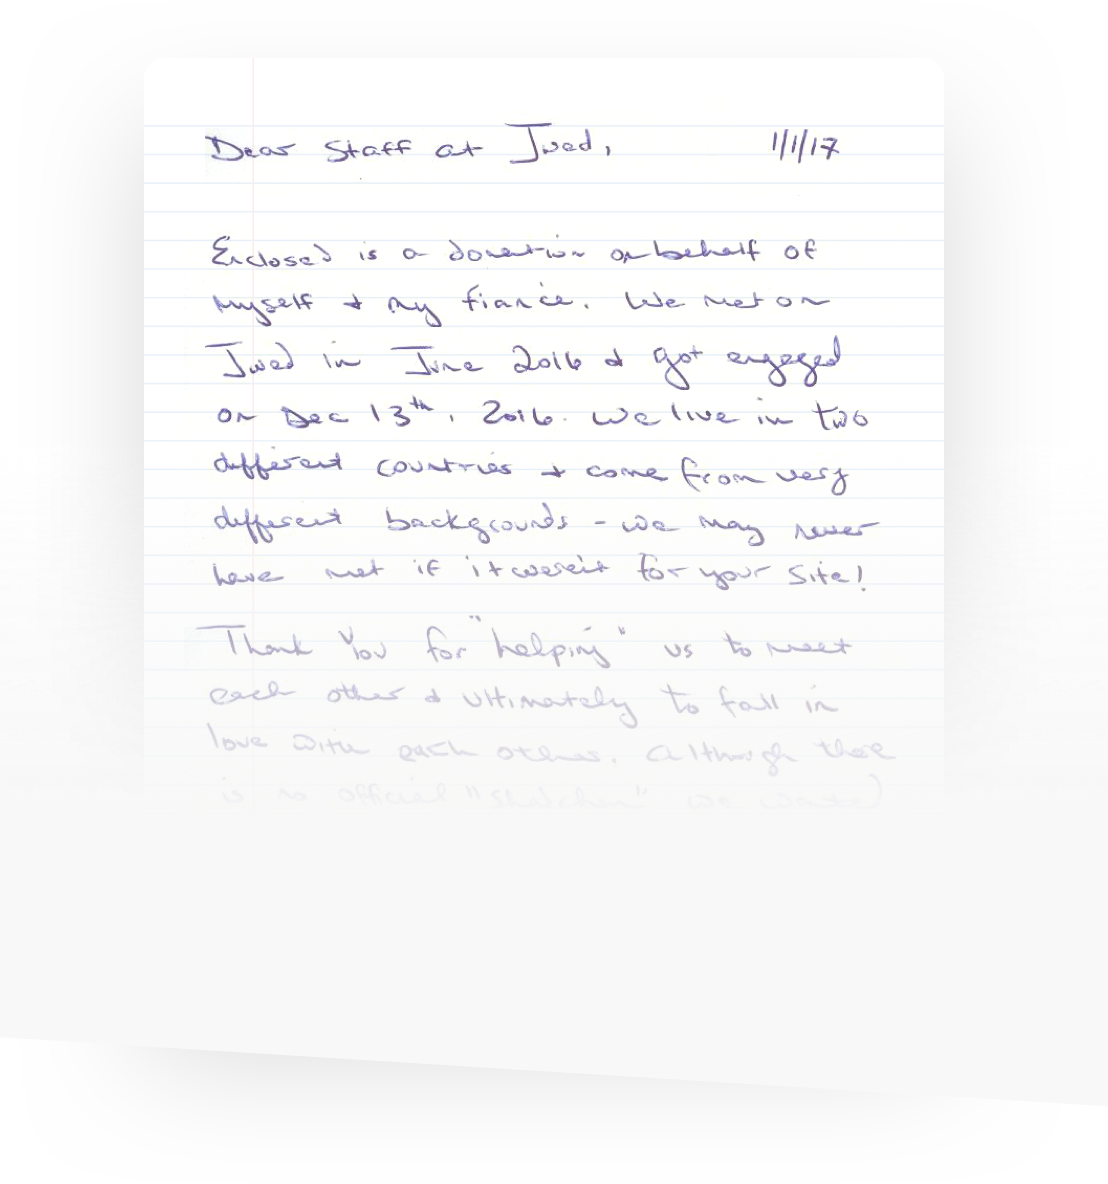 Dear Staff at Jwed, 1/1/17
Enclosed is a donation on behalf of
myself & my fiancé. We met on
Jwed in June 2016 & got engaged
on Dec 13th, 2016. We live in two
different countries & come from very
different backgrounds - we may never
have met if it weren't for your site!
Thank You for "helping" us to meet
each other & ultimately to fall in
love with each other. Although there
is no official "shadchan" we wanted